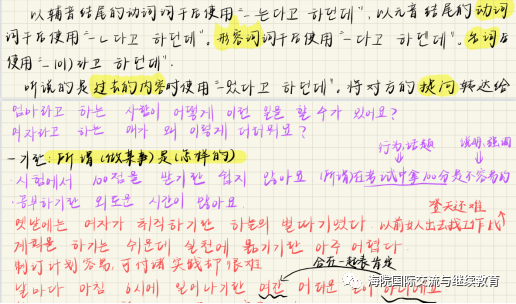 以辅音结尾的动词词干后使用"-는다고 하던데",以元音结尾的动词
词干后使用"-ㄴ다고 하던데"。形容词词干后使用"-다고 하던데"。名词后
使用"-(이)라고 하던데".
听说的是过去的内容时使用"-었다고 하던데"。将对方的提问转达给
엄마라고 하는 사람이 어떻게 이런 일을 할 수가 있어요?
여자라고 하는 애가 왜 이렇게 더더워요?
行为,话题 说明,强调
-기란: 所谓(做某事)是(怎样的)
시험에서 100점을 받기란 쉽지 않아요 (所谓)在考试中拿100分是不容易的
공부하기란 외로운 시간이 많아요. 登天还难
옛날에는 여자가 취직하기란 하늘의 별따기였다. 以前女人出去找工作比
계획을 하기는 쉬운데 실천에 옮기기란 아주 어렵다
制订计划容易,可付诸实践却很难
合在一起表肯定
날마다 아침 6시에 일어나기란 여간 어려운 일이 아니네요
海院国际交流与继续教育